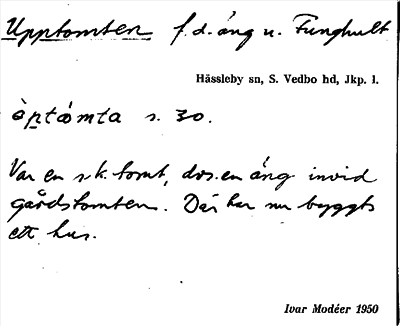 Upptomten f.d. äng u. Funghult
Hässleby sn, S. Vedbo hd, Jkp. l.
ȯptȯmta s. 30.
Var en s.k. tomt, dvs. en äng invid
gårdstomten. Där har nu byggts
ett hus.
Ivar Modéer 1950